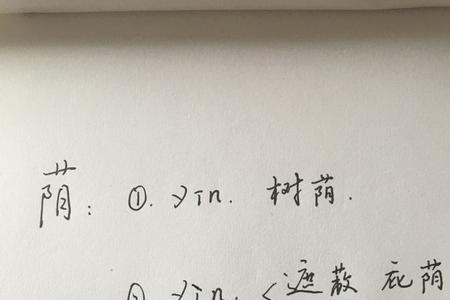 荫: ①. yīn. 树荫.
② yìn. < 遮蔽 庇荫